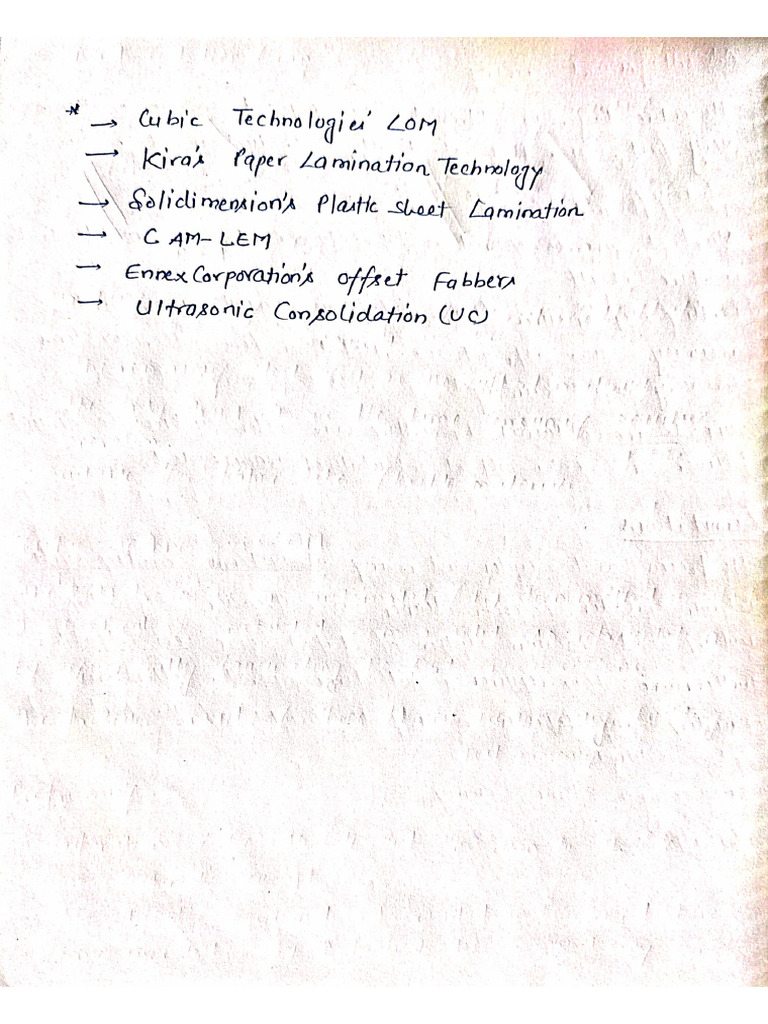 * → Cubic Technologies' LOM
→ Kira's Paper Lamination Technology
→ Solidimension's Plastic Sheet Lamination
→ CAM-LEM
→ Ennex Corporation's Offset Fabbers
→ Ultrasonic Consolidation (UC)